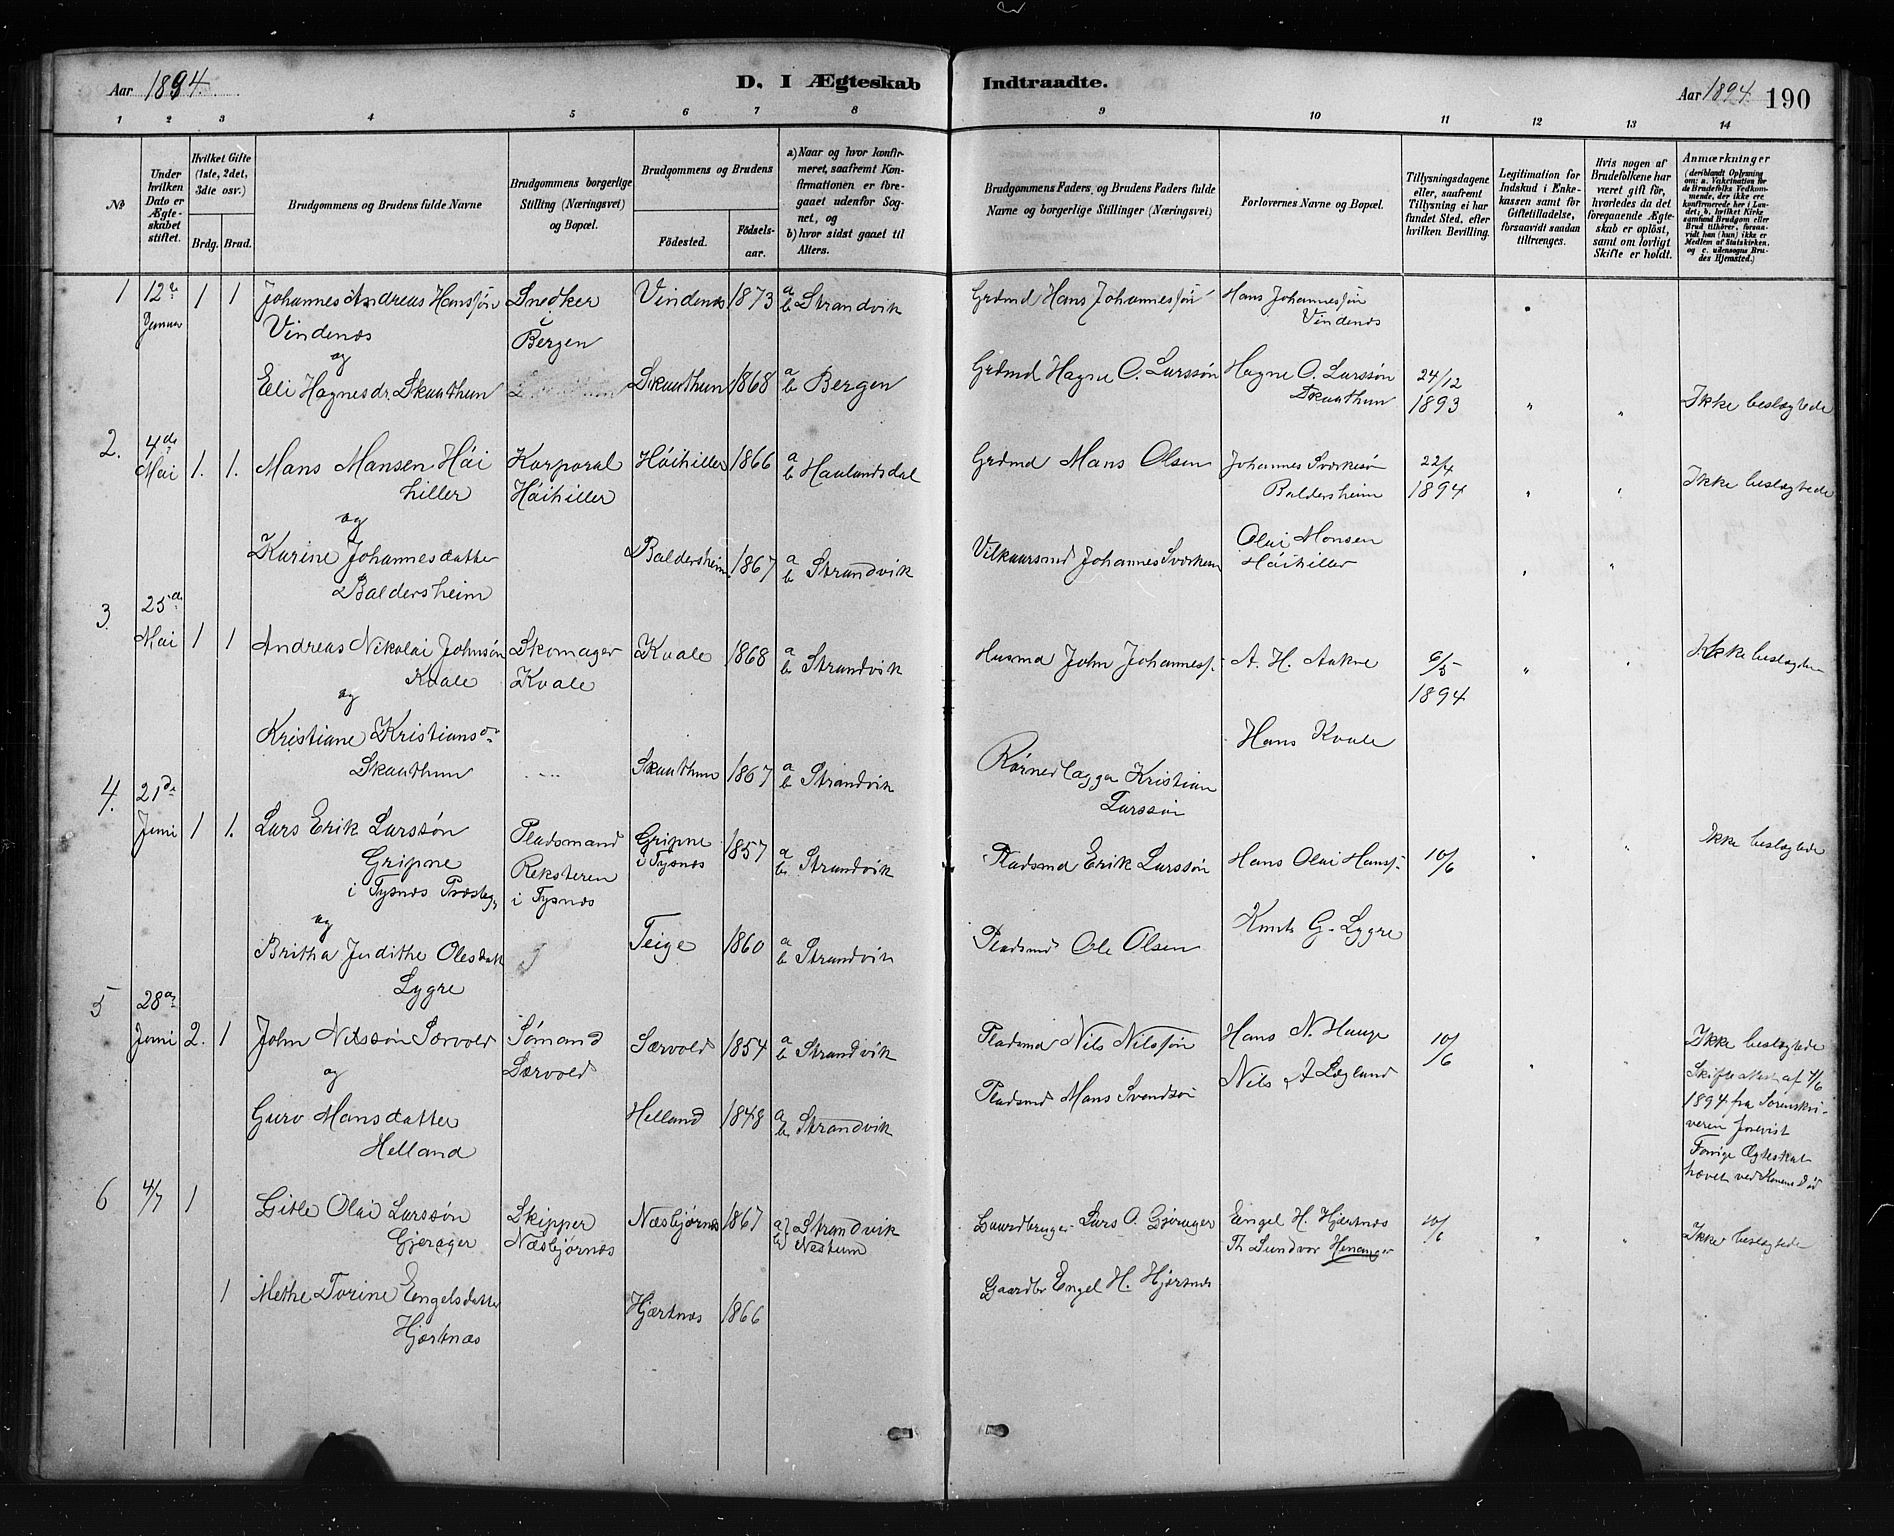 Aar 1894.
D. I Ægteskab Indtraadte.
Aar 1894. 190
1 2 3 4 5 6 7 8 9 10 11 12 13 14
No
Under hvilken Dato er Ægteskabet stiftet.
Hvilket Gifte (1ste, 2det, 3die osv.)
Brdg. Brud.
Brudgommens og Brudens fulde Navne
Brudgommens borgerlige Stilling (Næringsvei) og Bopæl.
Brudgommens og Brudens
Fødested. Fødselsaar.
a) Naar og hvor konfirmeret, saafremt Konfirmationen er foregaaet udenfor Sognet, og
b) hvor sidst gaaet til Alters.
Brudgommens Faders, og Brudens Faders fulde Navne og borgerlige Stillinger (Næringsvei)
Forlovernes Navne og Bopæl.
Tillysningsdagene eller, saafremt Tillysning ei har fundet Sted, efter hvilken Bevilling.
Legitimation for Indskud i Enkekassen samt for Giftetilladelse, forsaavidt saadan tiltrænges.
Hvis nogen af Brudefolkene har været gift før, hvorledes da det foregaaende Ægteskab er opløst, samt om lovligt Skifte er holdt.
Anmærkninger (deriblandt Oplysning om: a. Vakcination for de Brudefolks Vedkommende, der ikke ere konfirmerede her i Landet; b, hvilket Kirkesamfund Brudgom eller Brud tilhører, forsaavidt han (hun) ikke er Medlem af Statskirken, og c. udensogns Brudes Hjemsted.)
1 12te Januar 1 1 Johannes Andreas Hanssøn Snedker Vindenes 1873 a b Strandvik Grdmd Hans Johannessøn Hans Johannessøn
Vindenes Bergen Vindenes
og
Eli Hagnesdr. Skaathun Skaathun 1868 a b Bergen Grdmd Hagne O. Larssøn Hagne O. Larssøn 24/12
Skaathun 1893 " " Ikke beslægtede
2. 4de Mai 1. 1. Mans Mansen Håi Korporal Håihiller 1866 a b Haalandsdal Grdmd Mans Olsen Johannes Sverkesøn 22/4
hiller Håihiller Baldersheim 1894 " " Ikke beslægtede
og
Karine Johannesdatter Baldersheim 1867 a b Strandvik Vilkaarsmd Johannes Sverkesen Olai Monsen
Baldersheim Håihiller
3. 25de Mai 1 1 Andreas Nikolai Johnsøn Skomager Kvale 1868 a b Strandvik Husmd John Johanness. A. H. Aakre 6/5
Kvale Kvale 1894 " " Ikke beslægtede
og
Kristiane Kristiansdr Skaathun 1867 a b Strandvik Rørnedlægger Kristian Hans Kvale
Skaathun Larssøn
4. 21de Juni 1 1. Lars Erik Larssøn Pladsmand Gripne 1857 a b Strandvik Pladsmd Erik Larssøn Hans Olai Hanss. 10/6 Ikke beslægtede
Gripne Reksteren i Tysnes
i Tysnes Præsteg. i Tysnes
og
Britha Judithe Olesdatt Teige 1860 a b Strandvik Pladsmd Ole Olsen Knut G. Lygre
Lygre
5 28de Juni 2. 1 John Nilssøn Særvold Sømand Særvold 1854 a b Strandvik Pladsmd Nils Nilssøn Hans N. Hauge 10/6 Ikke beslægtede
og Særvold Nils A Legland Skifteattest af 4/6
Guro Mansdatter Helland 1848 a b Strandvik Pladsmd Mans Svendsøn 1894 fra Sorenskri-
Helland veren forevist
Forrige Ægteskab
hævet ved Konens Død
6 4/7 1 Gitle Olai Larssøn Skipper Næsbjørnes 1867 a) Strandvik Gaardbruger Lars O. Gjerager Engel H. Hjærtnes 10/6
Gjerager Næsbjørnes b) Nestum Th Sundvor Henanger " " Ikke beslægtede
1 Methe Torine Engelsdatter Hjærtnes 1866 Gaardbr Engel H. Hjærtnes
Hjærtnæs